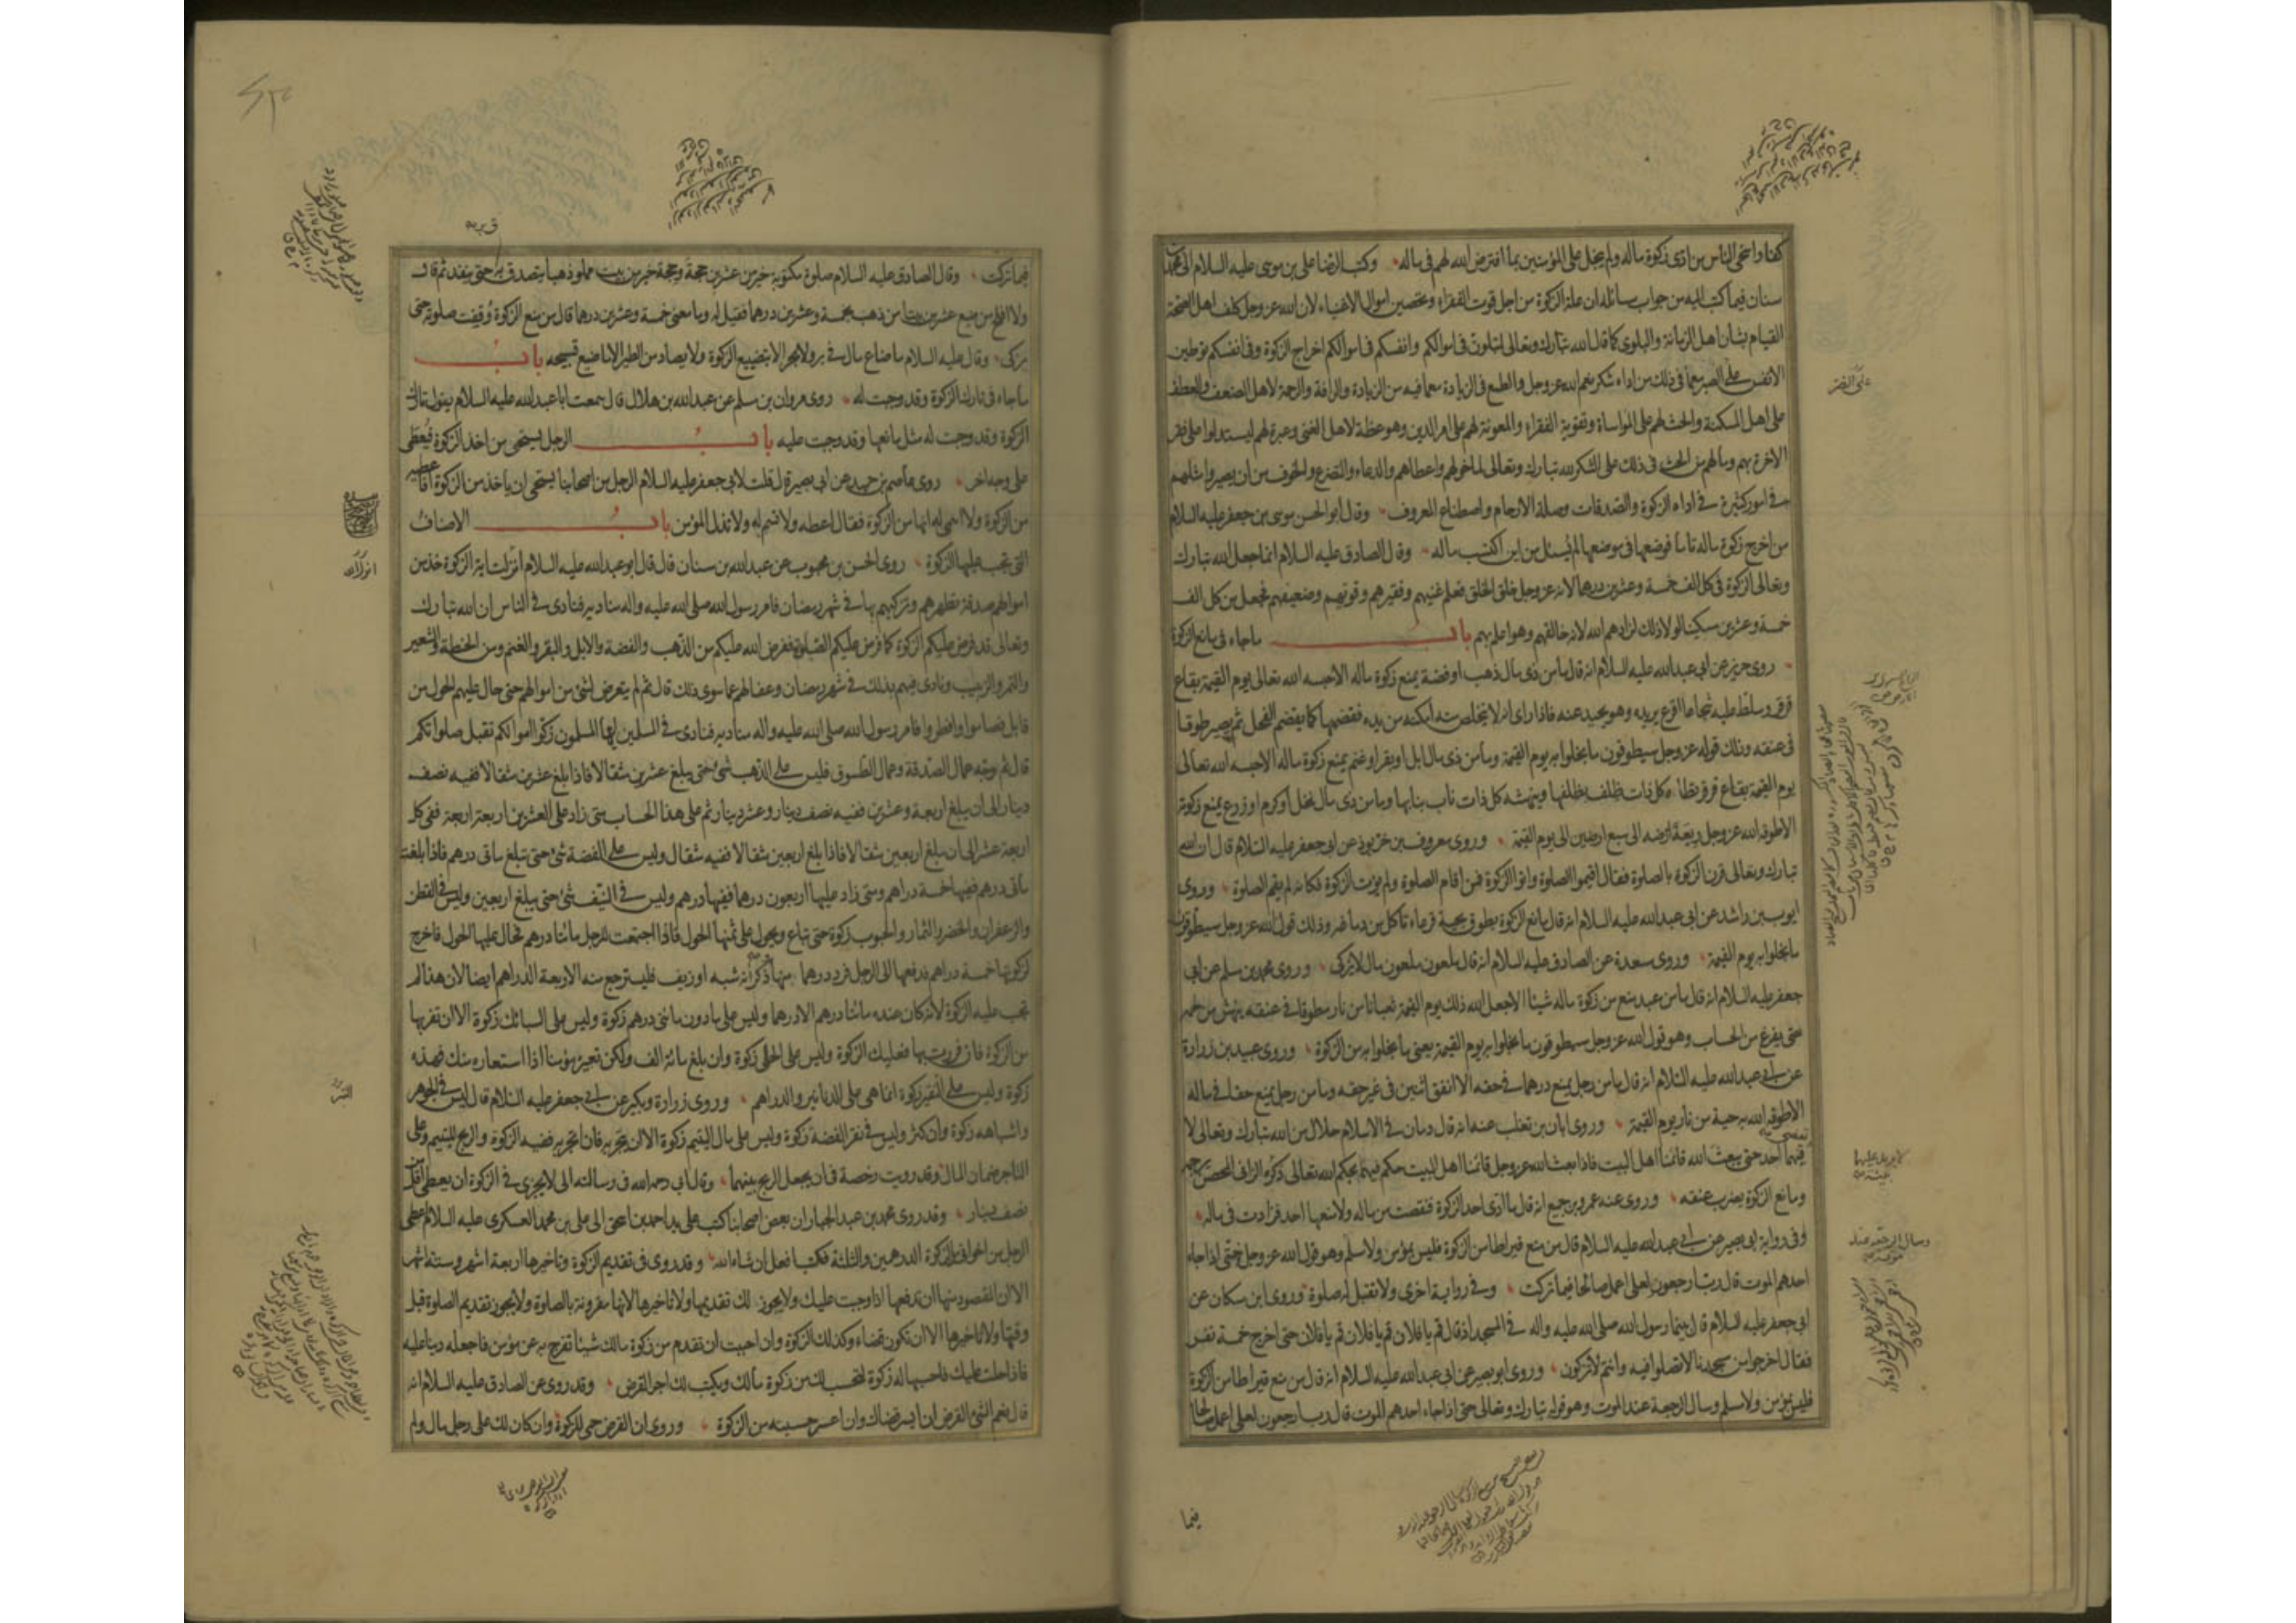 كفتاوا سخى الناس من ادى زكوة ماله ولم يبخل على المؤمنين بما افترض الله لهم فى ماله وكتب الرضا على بن موسى عليه السلام الى محمد بن
سنان فيما كتب اليه من جواب مسائله ان علة الزكوة من اجل قوت الفقراء وتحصين اموال الاغنياء لان الله عز وجل كلف اهل الصحة
القيام بشان اهل الزمانة والبلوى كما قال الله تبارك وتعالى لتبلون فى اموالكم وانفسكم فى اموالكم اخراج الزكوة وفى انفسكم توطين
الانفس على الصبر مع ما فى ذلك من اداء شكر نعم الله عز وجل والطمع فى الزيادة مع ما فيه من الزيادة والرافة والرحمة لاهل الضعف والعطف
على اهل المسكنة والحث لهم على المواساة وتقوية الفقراء والمعونة لهم على امر الدين وهو عظة لاهل الغنى وعبرة لهم ليستدلوا على فقر
الاخرة بهم وما لهم من الحث فى ذلك على الشكر لله تبارك وتعالى لما خولهم واعطاهم والدعاء والتضرع والخوف من ان يصيروا مثلهم
فى امور كثيرة فى اداء الزكوة والصدقات وصلة الارحام واصطناع المعروف وقال ابو الحسن موسى بن جعفر عليه السلام
من اخرج زكوة ماله تاما فوضعها فى موضعها لم يسئل من اين اكتسب ماله وقال الصادق عليه السلام انما جعل الله تبارك
وتعالى الزكوة فى كل الف خمسة وعشرين درهما لانه عز وجل خلق الخلق فعلم غنيهم وفقيرهم وقويهم وضعيفهم فجعل من كل الف
خمسة وعشرين مسكينا لولا ذلك لزادهم الله لانه خالقهم وهو اعلم بهم باب ما جاء فى مانع الزكوة
روى حريز عن ابى عبد الله عليه السلام انه قال ما من ذى مال ذهب او فضة يمنع زكوة ماله الا حبسه الله تعالى يوم القيمة بقاع
قرقر وسلط عليه شجاعا اقرع يريده وهو يحيد عنه فاذا راى انه لا يتخلص منه امكنه من يده فقضمها كما يقضم الفحل ثم يصير طوقا
فى عنقه وذلك قوله عز وجل سيطوقون ما بخلوا به يوم القيمة وما من ذى مال ابل او بقر او غنم يمنع زكوة ماله الا حبسه الله تعالى
يوم القيمة بقاع قرقر تطاه كل ذات ظلف بظلفها وينهشه كل ذات ناب بنابها وما من ذى مال نخل او كرم او زرع يمنع زكوته
الا طوقه الله عز وجل ريعة ارضه الى سبع ارضين الى يوم القيمة وروى معروف بن خربوذ عن ابى جعفر عليه السلام قال ان الله
تبارك وتعالى قرن الزكوة بالصلوة فقال اقيموا الصلوة واتوا الزكوة فمن اقام الصلوة ولم يؤت الزكوة فكانه لم يقم الصلوة وروى
ايوب بن راشد عن ابى عبد الله عليه السلام انه قال مانع الزكوة يطوق بحية قرعاء تاكل من دماغه وذلك قول الله عز وجل سيطوقون
ما بخلوا به يوم القيمة وروى مسعدة عن الصادق عليه السلام انه قال ملعون ملعون مال لا يزكى وروى محمد بن مسلم عن ابى
جعفر عليه السلام انه قال ما من عبد منع من زكوة ماله شيئا الا جعل الله ذلك يوم القيمة ثعبانا من نار مطوقا فى عنقه ينهش من لحمه
حتى يفرغ من الحساب وهو قول الله عز وجل سيطوقون ما بخلوا به يوم القيمة يعنى ما بخلوا به من الزكوة وروى عبيد بن زرارة
عن ابى عبد الله عليه السلام انه قال ما من رجل يمنع درهما فى حقه الا انفق اثنين فى غير حقه وما من رجل يمنع حقا فى ماله
الا طوقه الله به حية من نار يوم القيمة وروى ابان بن تغلب عنه انه قال دمان فى الاسلام حلال من الله تبارك وتعالى لا
يقضى
فيهما احد حتى يبعث الله قائمنا اهل البيت فاذا بعث الله عز وجل قائمنا اهل البيت حكم فيهما بحكم الله تعالى ذكره الزانى المحصن يرجمه
ومانع الزكوة يضرب عنقه وروى عنه عمرو بن جميع انه قال ما ادى احد الزكوة فنقصت من ماله ولا منعها احد فزادت فى ماله
وفى رواية ابى بصير عن ابى عبد الله عليه السلام قال من منع قيراطا من الزكوة فليس بمؤمن ولا مسلم وهو قول الله عز وجل حتى اذا جاء
احدهم الموت قال رب ارجعون لعلى اعمل صالحا فيما تركت وفى رواية اخرى ولا تقبل له صلوة وروى ابن مسكان عن
ابى جعفر عليه السلام قال بينما رسول الله صلى الله عليه واله فى المسجد اذ قال قم يا فلان قم يا فلان قم يا فلان حتى اخرج خمسة نفس
فقال اخرجوا من مسجدنا لا تصلوا فيه وانتم لا تزكون وروى ابو بصير عن ابى عبد الله عليه السلام انه قال من منع قيراطا من الزكوة
فليس بمؤمن ولا مسلم وسال الرجعة عند الموت وهو قوله تبارك وتعالى حتى اذا جاء احدهم الموت قال رب ارجعون لعلى اعمل صالحا
فيما
فيما تركت وقال الصادق عليه السلام صلوة مكتوبة خير من عشرين حجة وحجة خير من بيت مملو ذهبا يتصدق به حتى ينفد ثم قال
ولا افلح من ضيع عشرين بيتا من ذهب بخمسة وعشرين درهما فقيل له وما معنى خمسة وعشرين درهما قال من منع الزكوة وقفت صلوته حتى
يزكى وقال عليه السلام ما ضاع مال فى بر ولا بحر الا بتضييع الزكوة ولا يصاد من الطير الا ما ضيع تسبيحه باب
ما جاء فى تارك الزكوة وقد وجبت له روى مروان بن مسلم عن عبد الله بن هلال قال سمعت ابا عبد الله عليه السلام يقول تارك
الزكوة وقد وجبت له مثل مانعها وقد وجبت عليه باب الرجل يستحى من اخذ الزكوة فيعطى
على وجه اخر روى عاصم بن حميد عن ابى بصير قال قلت لابى جعفر عليه السلام الرجل من اصحابنا يستحى ان ياخذ من الزكوة افاعطيه
من الزكوة ولا اسمى له انها من الزكوة فقال اعطه ولا تسم له ولا تذل المؤمن باب الاصناف
التى تجب عليها الزكوة روى الحسن بن محبوب عن عبد الله بن سنان قال قال ابو عبد الله عليه السلام انزلت اية الزكوة خذ من
اموالهم صدقة تطهرهم وتزكيهم بها فى شهر رمضان فامر رسول الله صلى الله عليه واله مناديه فنادى فى الناس ان الله تبارك
وتعالى قد فرض عليكم الزكوة كما فرض عليكم الصلوة ففرض الله عليكم من الذهب والفضة والابل والبقر والغنم ومن الحنطة والشعير
والتمر والزبيب ونادى فيهم بذلك فى شهر رمضان وعفا لهم عما سوى ذلك قال ثم لم يتعرض لشئ من اموالهم حتى حال عليهم الحول من
قابل فصاموا وافطروا فامر رسول الله صلى الله عليه واله مناديه فنادى فى المسلمين ايها المسلمون زكوا اموالكم تقبل صلواتكم
قال ثم وجه عمال الصدقة وعمال الطسوق فليس على الذهب شئ حتى يبلغ عشرين مثقالا فاذا بلغ عشرين مثقالا ففيه نصف
دينار الى ان يبلغ اربعة وعشرين ففيه نصف دينار وعشر دينار ثم على هذا الحساب متى زاد على العشرين اربعة اربعة ففى كل
اربعة عشر الى ان يبلغ اربعين مثقالا فاذا بلغ اربعين مثقالا ففيه مثقال وليس على الفضة شئ حتى تبلغ مائتى درهم فاذا بلغت
مائتى درهم ففيها خمسة دراهم ومتى زاد عليها اربعون درهما ففيها درهم وليس فى النيف شئ حتى يبلغ اربعين وليس فى القطن
والزعفران والخضر والثمار والحبوب زكوة حتى تباع ويحول على ثمنها الحول فاذا اجتمعت للرجل مائتا درهم فحال عليها الحول فاخرج
لزكوتها خمسة دراهم فدفعها الى الرجل فرد درهما منها ذكر انه شبه او زيف فليسترجع منه الاربعة الدراهم ايضا لان هذا لم
تجب عليه الزكوة لانه كان عنده مائتا درهم الا درهما وليس على ما دون مائتى درهم زكوة وليس على السبائك زكوة الا ان تفر بها
من الزكوة فان فررت بها فعليك الزكوة وليس على الحلى زكوة وان بلغ مائة الف ولكن تعيره مؤمنا اذا استعاره منك فهذه
زكوة وليس على النقير زكوة انما هى على الدنانير والدراهم وروى زرارة وبكير عن ابى جعفر عليه السلام قال ليس فى الجوهر
واشباهه زكوة وان كثر وليس فى نقر الفضة زكوة وليس على مال اليتيم زكوة الا ان يتجر به فان اتجر به ففيه الزكوة والربح لليتيم وعلى
التاجر ضمان المال وقد رويت رخصة فى ان يجعل الربح بينهما وقال ابى رحمه الله فى رسالته الى لا يجزى فى الزكوة ان يعطى اقل من
نصف دينار وقد روى محمد بن عبد الجبار ان بعض اصحابنا كتب على يد احمد بن اسحق الى على بن محمد العسكرى عليه السلام اعطى
الرجل من اخوانى من الزكوة الدرهمين والثلثة فكتب افعل ان شاء الله وقد روى فى تقديم الزكوة وتاخيرها اربعة اشهر وستة اشهر
الا ان المقصود منها ان تدفعها اذا وجبت عليك ولا يجوز لك تقديمها ولا تاخيرها لانها مقرونة بالصلوة ولا يجوز تقديم الصلوة قبل
وقتها ولا تاخيرها الا ان تكون قضاء وكذلك الزكوة وان احببت ان تقدم من زكوة مالك شيئا تفرج به عن مؤمن فاجعله دينا عليه
فاذا حلت عليك فاحسبها له زكوة لتحسب لك من زكوة مالك ويكتب لك اجر القرض وقد روى عن الصادق عليه السلام انه
قال نعم الشئ القرض ان ايسر قضاك وان اعسر حسبته من الزكوة وروى ان القرض حمى للزكوة وان كان لك على رجل مال ولم